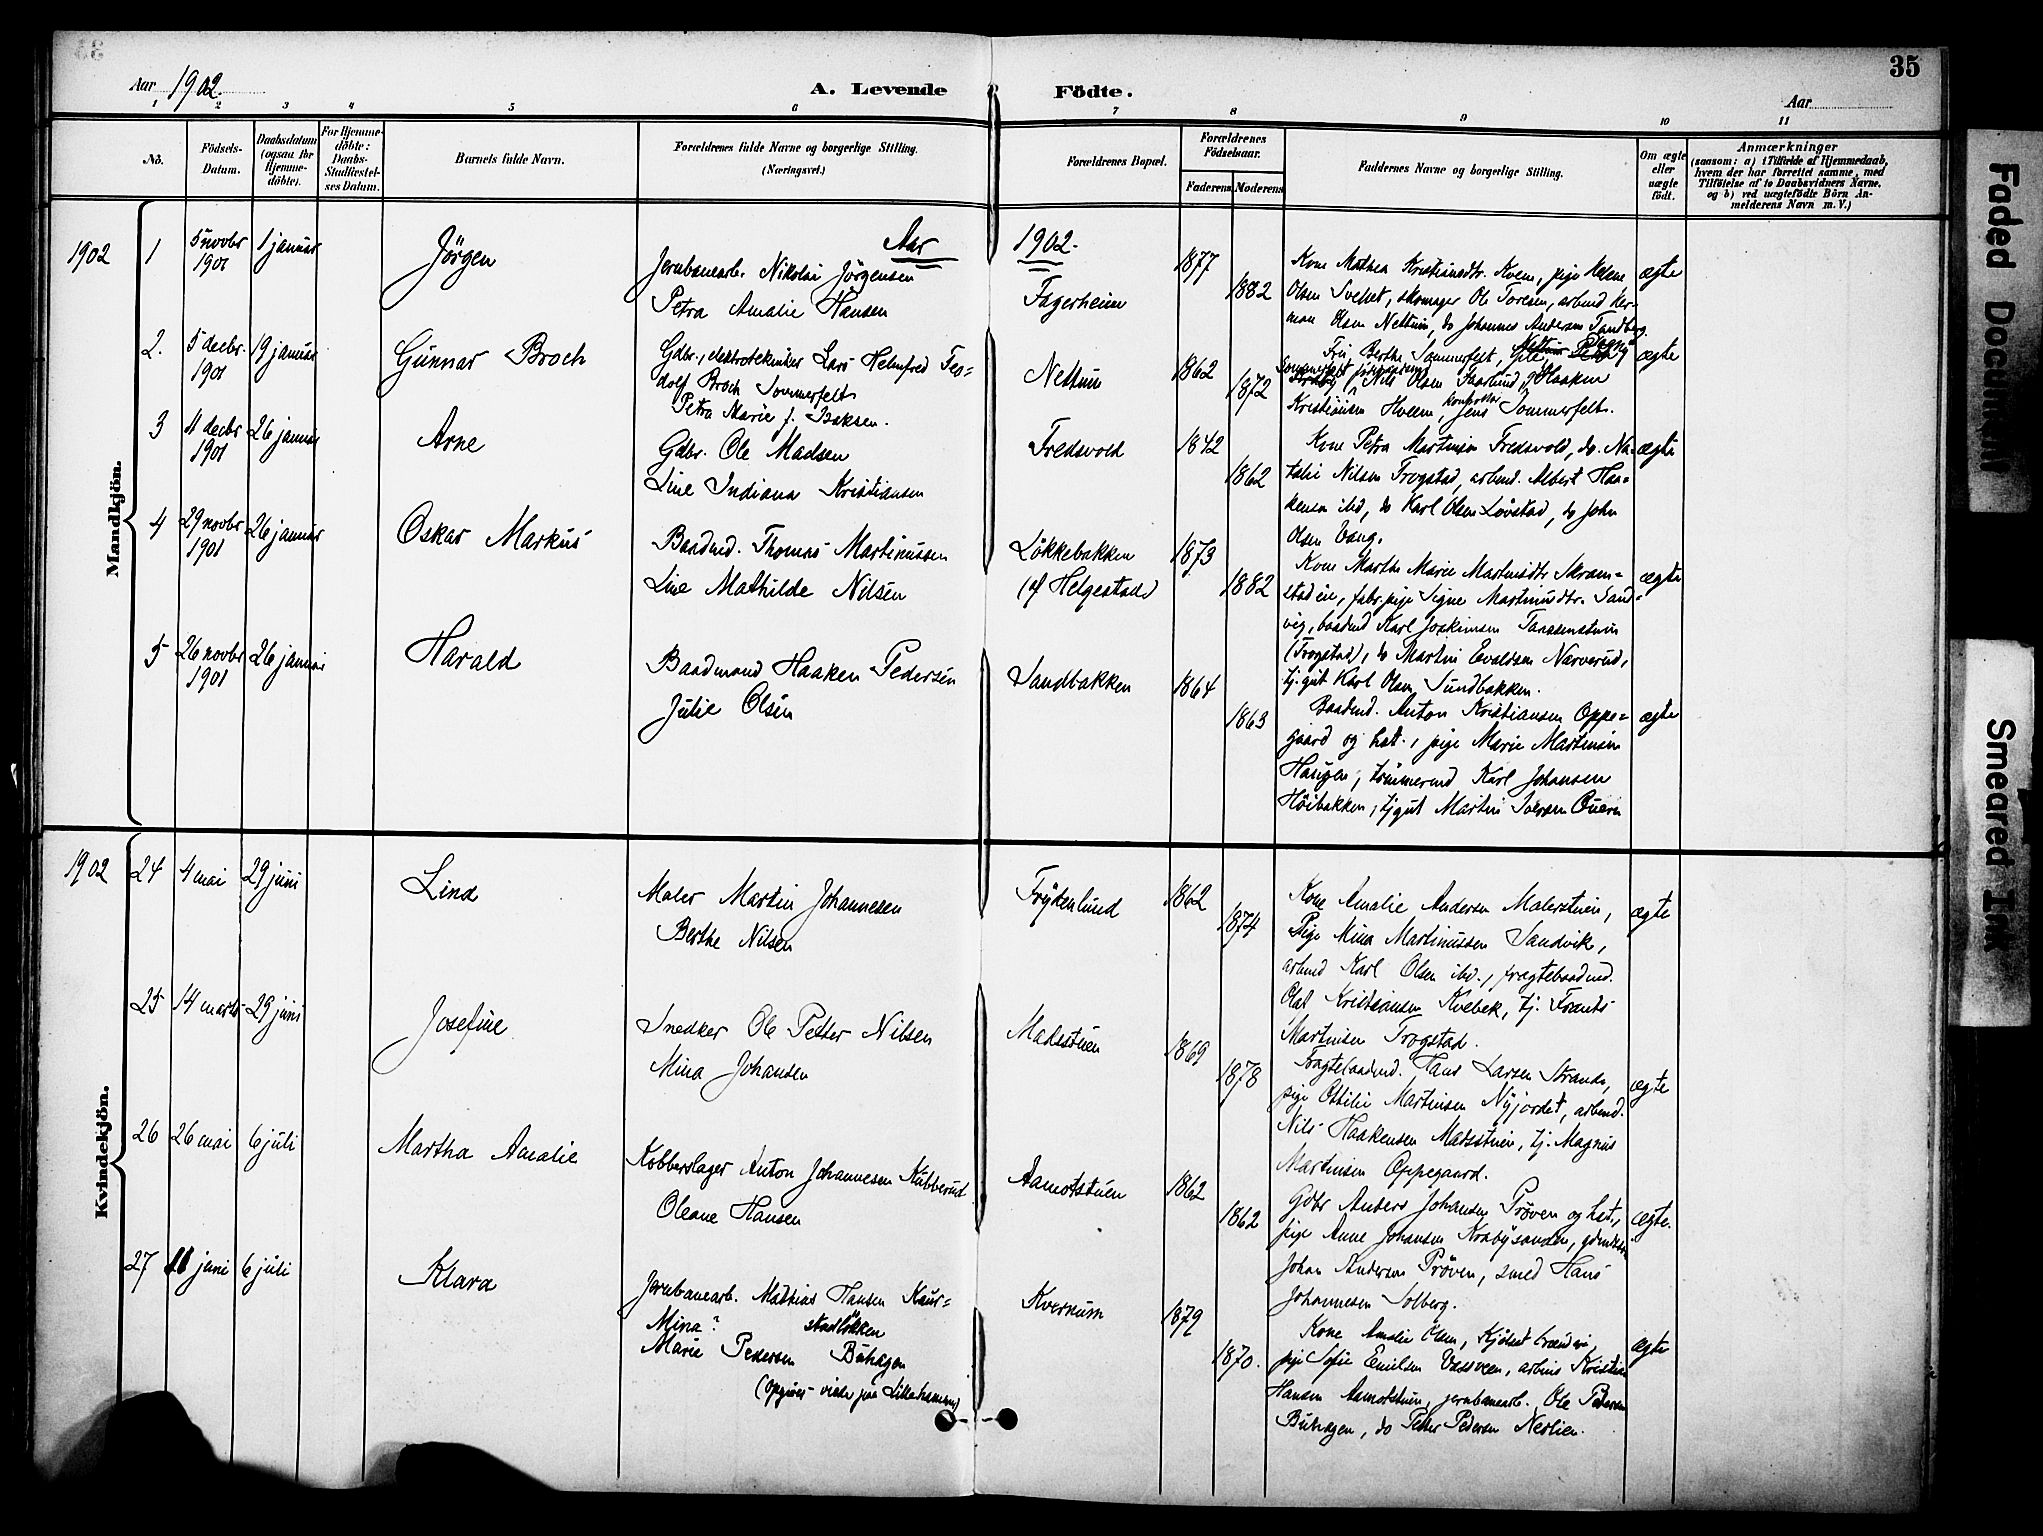 35
Aar 1902.
A. Levende Födte.
Aar
1 2 3 4 5 6 7 8 9 10 11
No.
Födsels-Datum.
Daabsdatum (ogsaa for Hjemme-döbte).
For Hjemme-döbte: Daabs-Stadfæstel-ses Datum.
Barnets fulde Navn.
Forældrenes fulde Navne og borgerlige Stilling.
(Næringsvei.)
Forældrenes Bopæl.
Forældrenes Födselsaar.
Faderens Moderens
Faddernes Navne og borgerlige Stilling.
Om ægte eller uægte födt.
Anmærkninger
(saasom: a) i Tilfælde af Hjemmedaab,
hvem der har forrettet samme, med
Tilföielse af to Daabsvidners Navne,
og b) ved uægtefödte Börn An-
melderens Navn m. V.)
Mandkjön.
Aar 1902.
1902 1 5 novbr 1901 1 januar
Jörgen
Jernbanearb. Nikolai Jörgensen
Petra Amalie Hansen
Fagerheim
1877
1882
Kone Mathea Kristiansdtr. Kvem, pige Helene
Olsen Svehet, skomager Ole Toresen, arbmd Her-
man Olsen Nettum, do Johannes Andersen Tandberg.
ægte
2. 5 decbr. 1901 19 januar
Gunnar Broch
Gdbr., elektrotekniker Lars Helmfred Teo-
dolf Broch Sommerfelt
Petra Marie f. Isaksen.
Nettum
1862
1872
Fru Berthe Sommerfelt,
Nils Olsen Faarlund, Haaken
Kristiansen Hveem, Jens Sommerfelt.
ægte
3 11 decbr 1901 26 januar
Arne
Gdbr. Ole Madsen
Line Indiana Kristiansen
Fredsvold
1842
1862
Kone Petra Martinsen Fredsvold, do. Na-
talie Nilsen Trogstad, arbmd. Albert Haa-
kensen ibd, do Karl Olsen Lövstad, do John
Olsen Vang.
ægte
4 29 novbr 1901 26 januar
Oskar Markus
Baadmd. Thomas Martinussen
Line Mathilde Nilsen
Lökkebakken
(u/ Helgestad)
1873
1882
Kone Marthe Marie Martinsdtr. Skram-
stadeie, fabr.pige Signe Martinusdtr. Sand-
vig, baadmd Karl Joakimsen
(Trogstad), do Martin Evaldsen Narverud,
tj. gut Karl Olsen Sundbakken.
ægte
5 26 novbr 1901 26 januar
Harald
Baadmand Haaken Pedersen
Julie Olsen
Sandbakken
1864
1863
Baadmd. Anton Kristiansen Oppe-
gaard og hst., pige Marie Martinsen
Haugen, tömmermd Karl Johansen
Höibakken, tj gut Martin Iversen
ægte
Kvindekjön.
1902 24 4 mai 29 juni
Lind
Maler Martin Johannesen
Berthe Nilsen
Frydenlund
1862
1874
Kone Amalie Andersen Malerstuen,
Pige Mina Martinussen Sandvik,
arbmd Karl Olsen ibd., fragtebaadmd.
Olaf Kristiansen Kvebek, tj. Frants
Martinsen Trogstad.
ægte
25 14 marts 29 juni
Josefine
Snedker Ole Petter Nilsen
Mina Johansen
Madsstuen
1869
1878
Fragtebaadmd. Hans Larsen Strande,
pige Ottilie Martinsen Nyjordet, arbmd.
Nils Haakensen Madsstuen, tj. Magnus
Martinsen Oppegaard.
ægte
26 26 mai 6 juli
Martha Amalie
Kobberslager Anton Johannesen Kubberud
Oleane Hansen
Aamotstuen
1862
1862
Gdbr Anders Johansen Pröven og hst.,
pige Anne Johansen Krabysanden,
Johan Andersen Pröven, smed Hans
Johannesen Solberg.
ægte.
27 11 juni 6 juli
Klara
Jernbanearb. Mathias Hansen Kaur-
stadlökken
Mina?
Marie Pedersen Buhagen
(opgives viede paa Lillehammer)
Kvernum
1879
1870.
Kone Amalie Olsen,
pige Sofie Emilsen Vassveen, Kristian
Hansen Aamotstuen, jernbanearb. Ole Pedersen
Buhagen, do Petter Pedersen Nerlien.
ægte
Faded Document
Smeared Ink